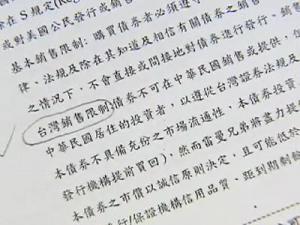 除在 S 規定(Reg
或對美國公民發行或銷
基本銷售限制: 購買債券者必須遵守
律、法規及除在其知及相信有關債券之銷售
之情況下, 不會直接或間接地對債券進行發行、銷售
台灣銷售限制債券不可在中華民國銷售或提供, 但
中華民國居住的投資者, 以遵從台灣證券法規及
本債券不具備充份之市場流通性, 本債券投資
發行機構提前買回), 然而雷曼兄弟將盡力提
本債券之市價以誠信原則決定, 且可能低於
發行/保證機構信用品質、距到期剩餘